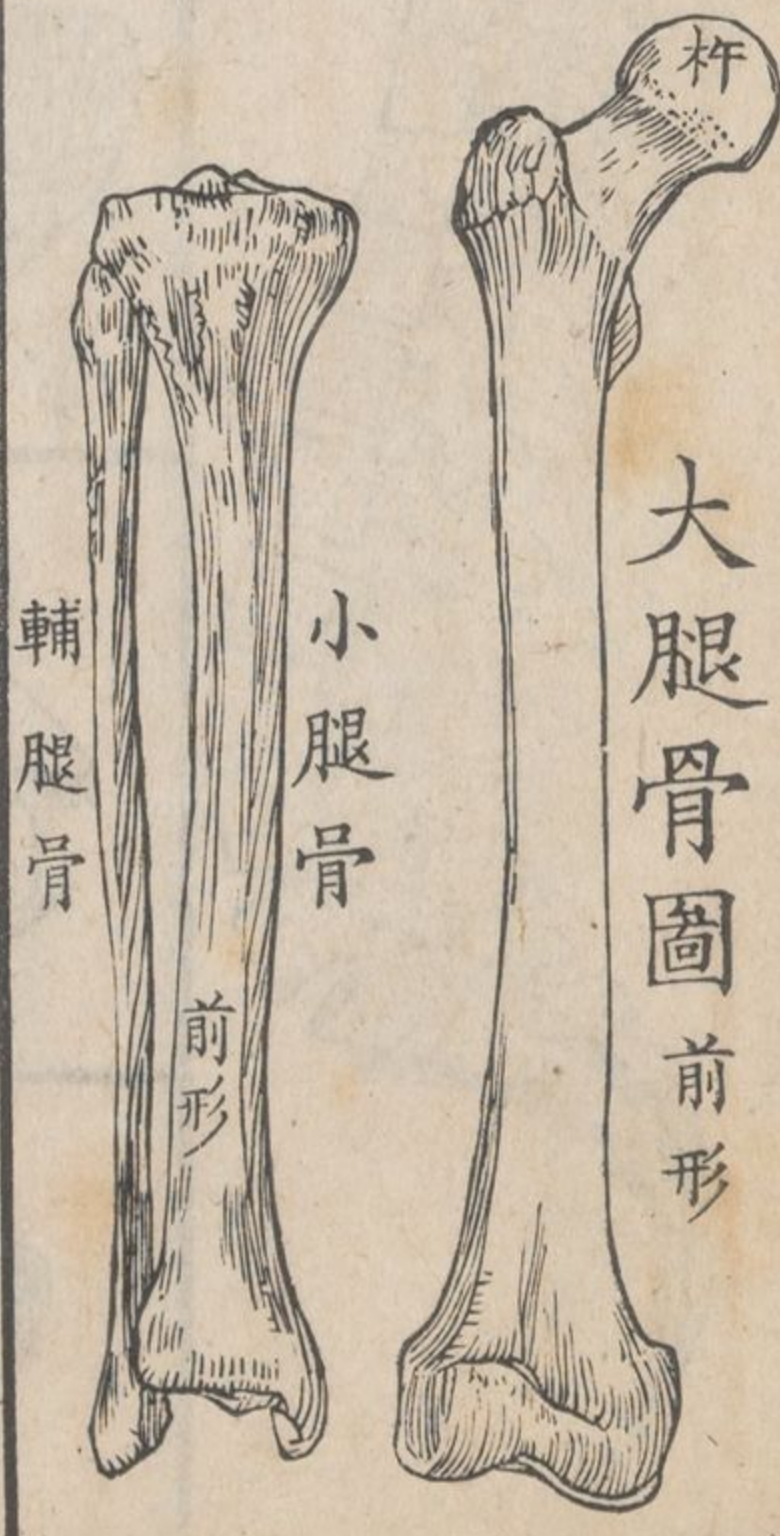 杵
大腿骨圖前形
小腿骨
前形
輔腿骨